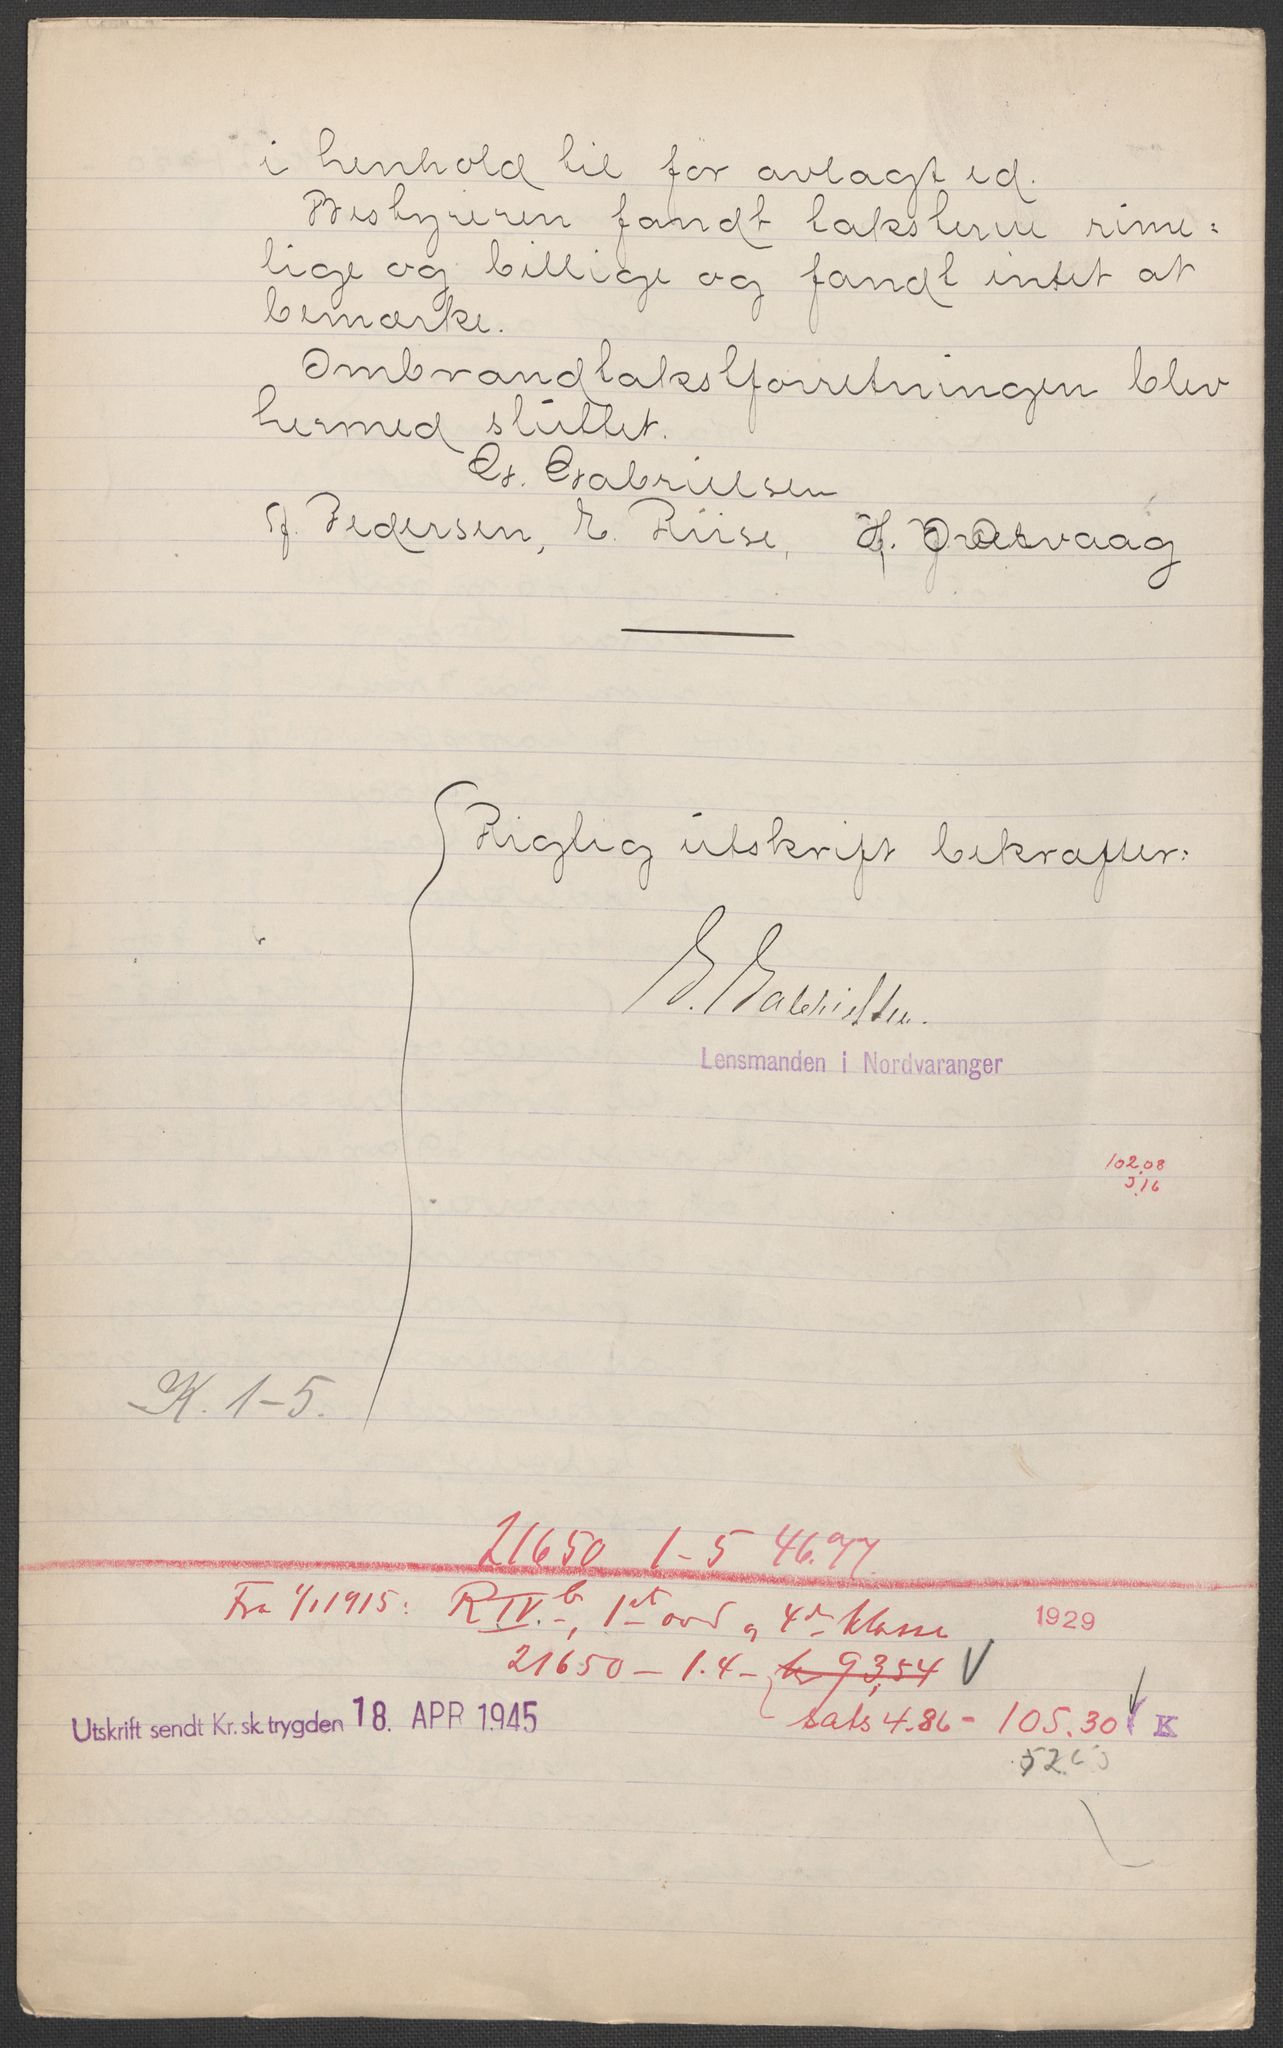 i henhold til før avlagt ed.
Bestyreren fandt taksterne rime=
lige og billige og fandt intet at
bemærke.
Ombrandtakstforretningen blev
hermed sluttet.
G. Gabrielsen
J. Pedersen, E. Riise, H.
Rigtig utskrift bekræfter:
G. Gabrielsen.
Lensmanden i Nordvaranger
102,08
3,16
K. 1-5.
21650 1-5 46.97
Fra 1/1 1915: R IV. b, 1st ord og 4de klasse
1929
21650 - 1.4 - kr 93,54 V
Utskrift sendt Kr.sk.trygden 18. APR 1945
sats 4.86 - 105.30 K